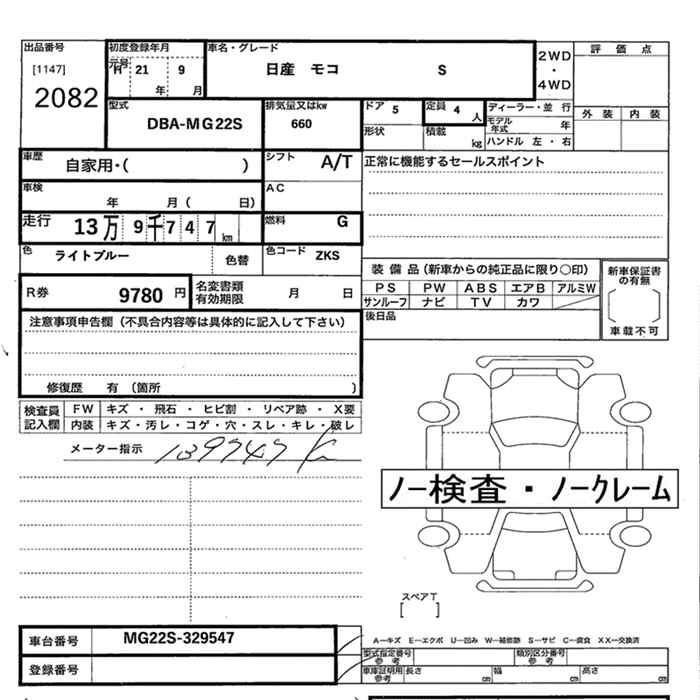 出品番号
[1147]
2082
初度登録年月
元号 H 21 9
年 月
車名・グレード
日産 モコ S
2WD
・
4WD
評価点
外装 内装
型式
DBA-MG22S
排気量又はkw
660
ドア 5
定員 4 人
形状
積載 kg
ディーラー・並行
モデル年式 年
ハンドル 左・右
車歴
自家用・( )
シフト A/T
正常に機能するセールスポイント
車検
年 月( 日)
AC
走行 13万 9千747 km
燃料 G
色 ライトブルー 色替
色コード ZKS
装備品(新車からの純正品に限り○印)
PS PW ABS エアB アルミW
サンルーフ ナビ TV カワ
後日品
新車保証書の有無
車載不可
R券 9780 円
名変書類有効期限 月 日
注意事項申告欄(不具合内容等は具体的に記入して下さい)
修復歴 有 (箇所 )
検査員記入欄
FW キズ・飛石・ヒビ割・リペア跡・X要
内装 キズ・汚レ・コゲ・穴・スレ・キレ・破レ
メーター指示 139747 K
ノー検査・ノークレーム
スペアT
[ ]
車台番号 MG22S-329547
登録番号
A-キズ E-エクボ U-凹み W-補修跡 S-サビ C-腐食 XX-交換済
型式指定番号参考
類別区分番号参考
車庫証明用参考 長さ cm 幅 cm 高さ cm